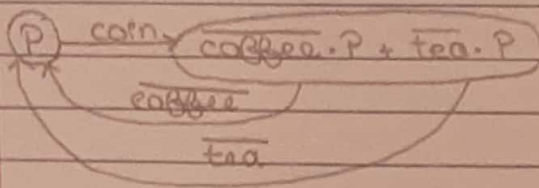 P coin c̅o̅f̅f̅e̅e̅.P + t̅e̅a̅.P
c̅o̅f̅f̅e̅e̅
t̅e̅a̅